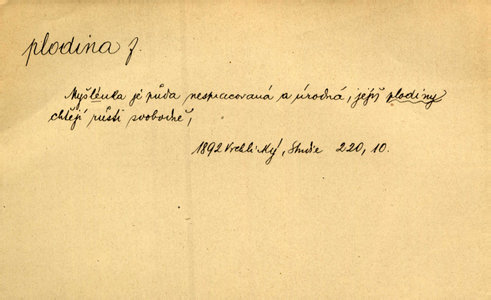 plodina f.
Myšlénka je půda nespracovaná a úrodná, jejíž plodiny
chtějí růsti svobodně,
1892 Vrchlický, Studie 220, 10.